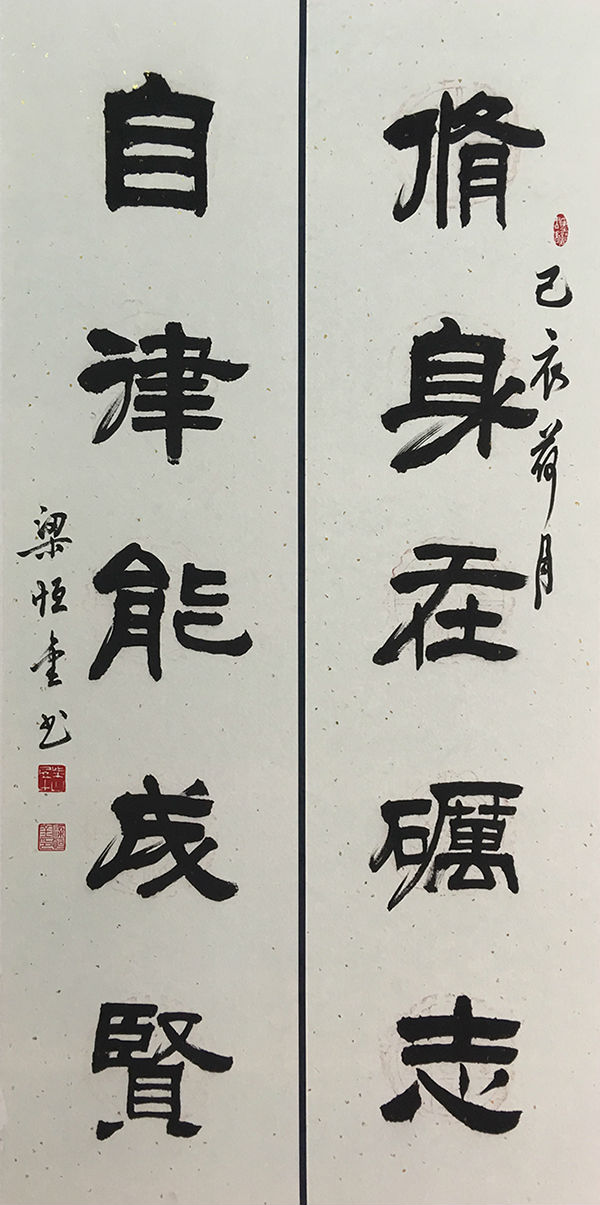 己亥荷月
脩身在礪志
自律能成賢
梁恒书